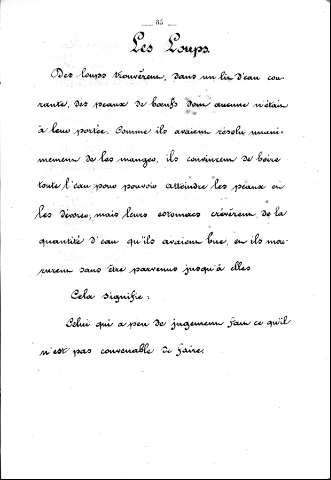 — 85 —
Les Loups.
Des loups trouvèrent, dans un lit d'eau cou-
rante, des peaux de bœufs dont aucune n'était
à leur portée. Comme ils avaient résolu unani-
mement de les manger, ils convinrent de boire
toute l'eau pour pouvoir atteindre les peaux et
les dévorer, mais leurs estomacs crevèrent de la
quantité d'eau qu'ils avaient bue, et ils mou-
rurent sans être parvenus jusqu'à elles
Cela signifie :
Celui qui a peu de jugement fait ce qu'il
n'est pas convenable de faire.